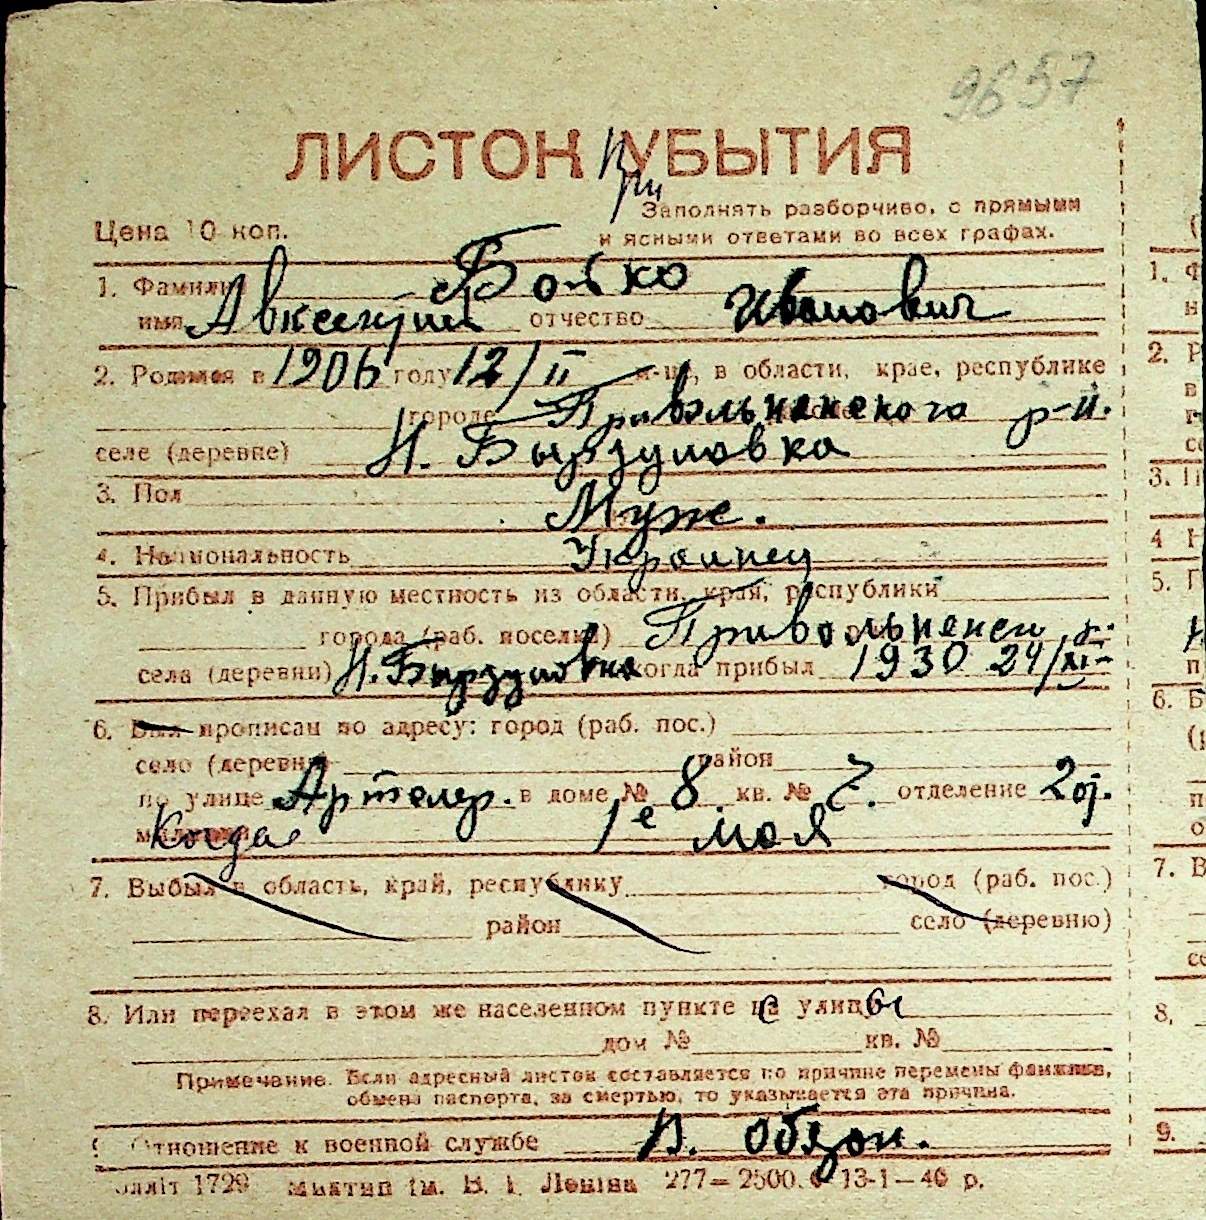 9657
ЛИСТОК При УБЫТИЯ
Заполнять разборчиво, с прямыми
Цена 10 коп.
и ясными ответами во всех графах.
1. Фамилия Бойко
имя Авксентий отчество Иванович
2. Родился в 1906 году 12/II м-ца, в области, крае, республике
городе Привольнянского р-н.
селе (деревне) Н. Бырзуловка
3. Пол Муж.
4. Национальность Украинец
5. Прибыл в данную местность из области, края, республики
города (раб. поселка) Привольненск р.
села (деревни) Н. Бырзуловка когда прибыл 1930 24/XI
6. Был прописан по адресу: город (раб. пос.)
село (деревня) район
по улице Артелер. в доме № 8 кв. № 7. отделение 2
Когда 1е мая
7. Выбыл в область, край, республику город (раб. пос.)
район село (деревню)
8. Или переехал в этом же населенном пункте с улицы
дом № кв. №
Примечание. Если адресный листок составляется по причине перемены фамилии,
обмена паспорта, за смертью, то указывается эта причина.
9. Отношение к военной службе В. обязан.
1729 Миктип ім. В. І. Леніна 277—2500. 13-1-40 р.
1.
2.
3.
4
5.
6.
7.
8.
9.